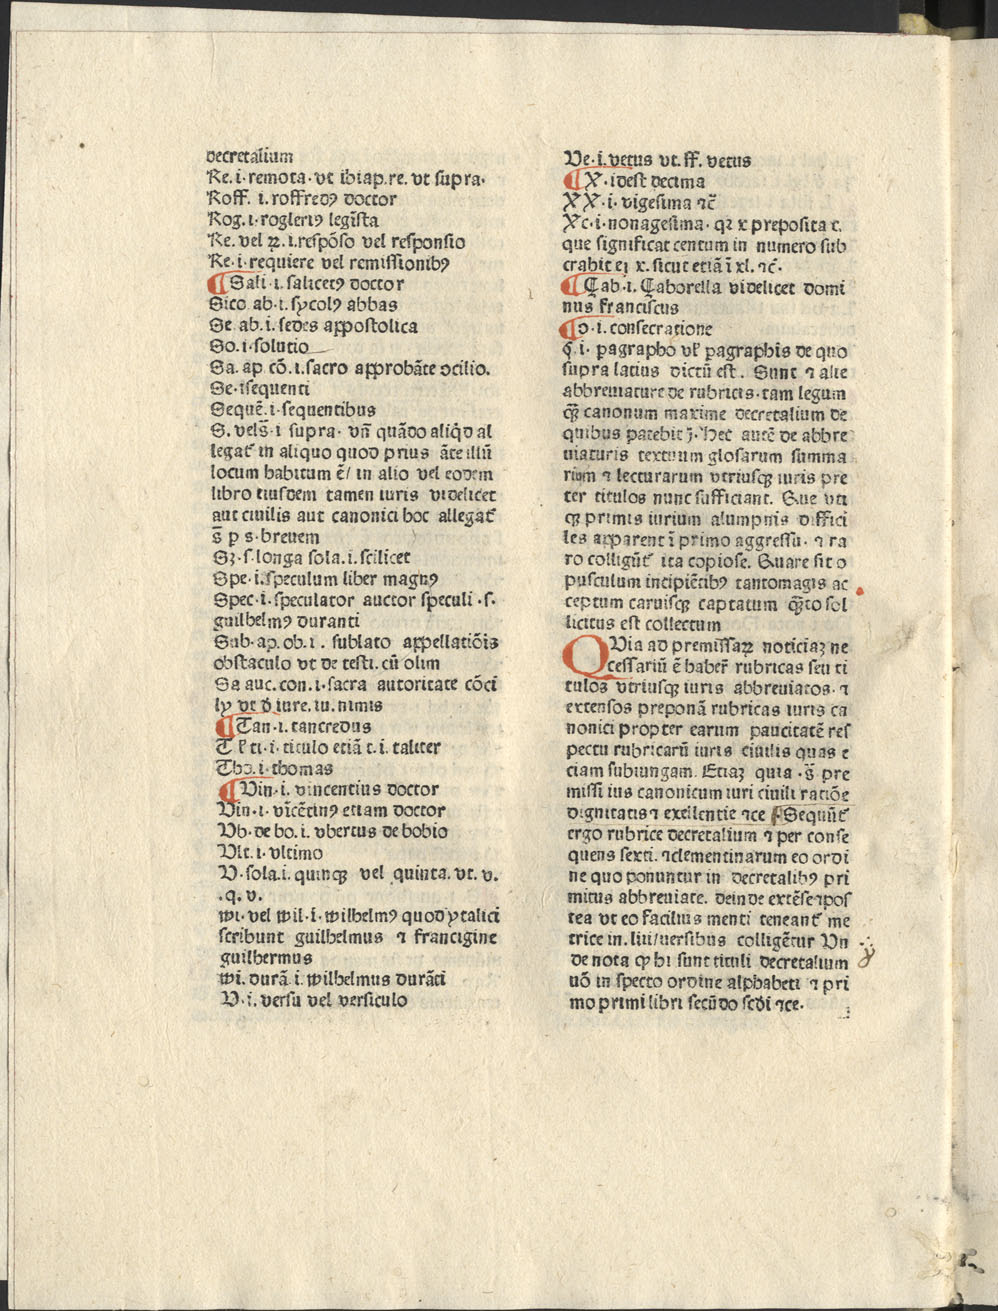 decretaliũm
Re. i. remota. vt ibi ap. re. vt supra.
Roff. i. roffredꝰ doctor
Rog. i. rogleriꝰ legĩsta
Re. vel ꝶ. i. respõso vel responsio
Re. i. requiere vel remissionibꝰ
¶ Sali. i. salicetꝰ doctor
Sico ab. i. sycolꝰ abbas
Se ab. i. sedes appostolica
So. i. solutio
Sa. ap. cõ. i. sacro approbãte ɔcilio.
Se. isequenti
Sequẽ. i. sequentibus
S. vel s̃. i supra. vñ quãdo aliq̃d al
legat᷑ in aliquo quod prius ãte illũ
locum habitum ẽ/ in alio vel eodem
libro eiusdem tamen iuris videlicet
aut ciuilis aut canonici hoc allegat᷑
s̃ p s. breuem
Sꝫ. s. longa sola. i. scilicet
Spe. i. speculum liber magnꝰ
Spec. i. speculator auctor speculi. s.
guilhelmꝰ duranti
Sub. ap. ob. i. sublato appellatiõis
obstaculo vt de testi. cũ olim
Sa auc. con. i. sacra autoritate cõci
ly vt đ iure. iu. nimis
¶ Tan. i. tancredus
T ł ti. i. titulo etiã t. i. taliter
Tho. i. thomas
¶ Vin. i. vincentius doctor
Vin. i. vĩcẽtinꝰ etiam doctor
Vb. de bo. i. vbertus de bobio
Vlt. i. vltimo
V. sola. i. quinqꝫ vel quinta. vt. v.
.q. v.
wi. vel wil. i. wilhelmꝰ quod ytalici
scribunt guilhelmus ⁊ francigine
guilhermus
wi. durã. i. wilhelmus durãti
V. i. versu vel versiculo
Ve. i. vetus vt. ff. vetus
¶ X. idest decima
XX. i. vigesima ⁊c̃
Xc. i. nonagesima. qꝛ x preposita c.
que significat centum in numero sub
crahit ei x. sicut etiã ĩ xl. ⁊c̃.
¶ Zab. i. Zaborella videlicet domi
nus franciscus
¶ ɔ. i. consecratione
q̃. i. pagrapho vł pagraphis de quo
supra latius dictũ est. Sunt ⁊ alie
abbreuiature de rubricis. tam legum
qꝫ̃ canonum maxime decretalium de
quibus patebit j̃. Hec autẽ de abbre
uiaturis textuum glosarum summa
rium ⁊ lecturarum vtriusqꝫ iuris pre
ter titulos nunc sufficiant. Que vti
qꝫ primis iurium alumpnis diffici
les apparent ĩ primo aggressu. ⁊ ra
ro colligũt᷑ ita copiose. Quare sit o
pusculum incipiẽtibꝰ tantomagis ac
ceptum caruisqꝫ captatum qꝫ̃to sol
licitus est collectum
QVia ad premissaꝝ noticiaꝫ ne
cessariũ ẽ haber̃ rubricas seu ti
tulos vtriusqꝫ iuris abbreuiatos. ⁊
extensos preponã rubricas iuris ca
nonici propter earum paucitatẽ res
pectu rubricarũ iuris ciuilis quas e
ciam subiungam. Etiaꝫ quia. s̃ pre
missi ius canonicum iuri ciuili ratiõe
dignitatis ⁊ exellentie ⁊ce ¶Sequũt᷑
ergo rubrice decretalium ⁊ per conse
quens sexti. ⁊clementinarum eo ordi
ne quo ponuntur in decretalibꝰ pri
mitus abbreuiate. deinde extẽse ⁊pos
tea vt eo facilius menti teneant᷑ me
trice in. liii/uersibus colligẽtur Vn
de nota ꝙ hi sunt tituli decretalium
uõ in specto ordine alphabeti ⁊ pri
mo primi libri secũdo scđi ⁊ce.